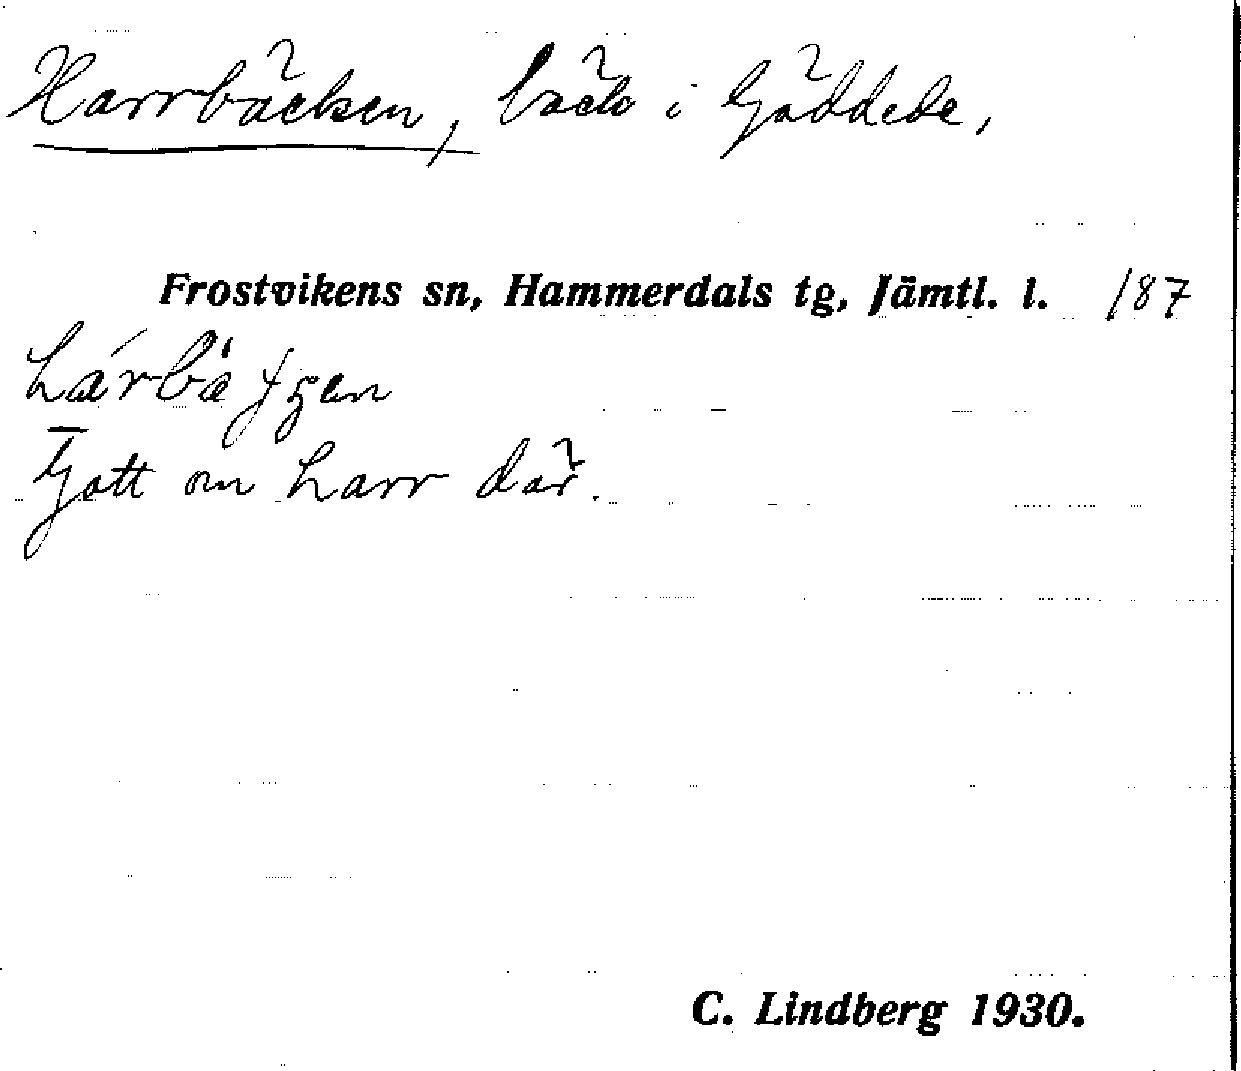 Harrbäcken, bäck i Gäddede,
Frostvikens sn, Hammerdals tg, Jämtl. l. 187
Gott om harr där.
C. Lindberg 1930.